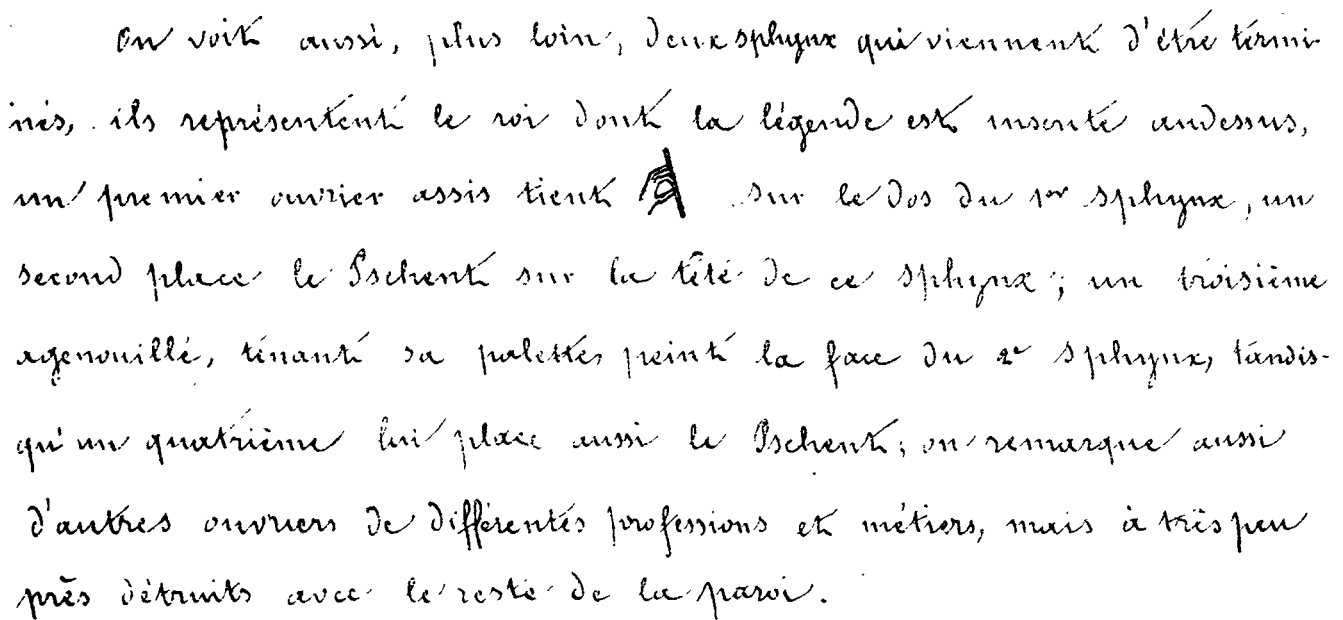 On voit aussi, plus loin, deux sphynx qui viennent d'être termi-
inés, ils représentent le roi dont la légende est inscrite audessus,
un premier ouvrier assis tient sur le dos du 1er sphynx, un
second place le Pschent sur la tête de ce sphynx; un troisième
agenouillé, tenant sa palette, peint la face du 2e sphynx, tandis-
qu'un quatrième lui place aussi le Pschent; on remarque aussi
d'autres ouvriers de différentes professions et métiers, mais à très peu
près détruits avec le reste de la paroi.